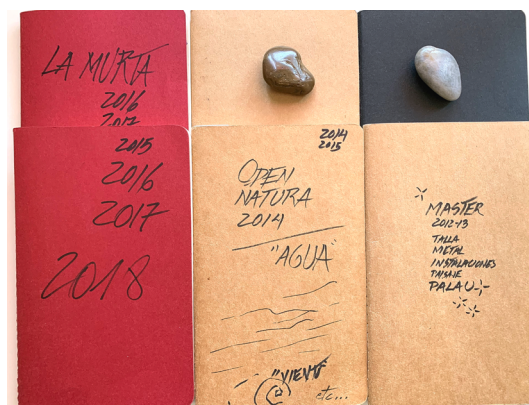 LA MURTA
2016
2017
2015
2016
2017
2018
2014
2015
OPEN
NATURA
2014
"AGUA"
"VIENTO"
etc...
MASTER
2012-13
TALLA
METAL
INSTALACIONES
PAISAJE
PALAU